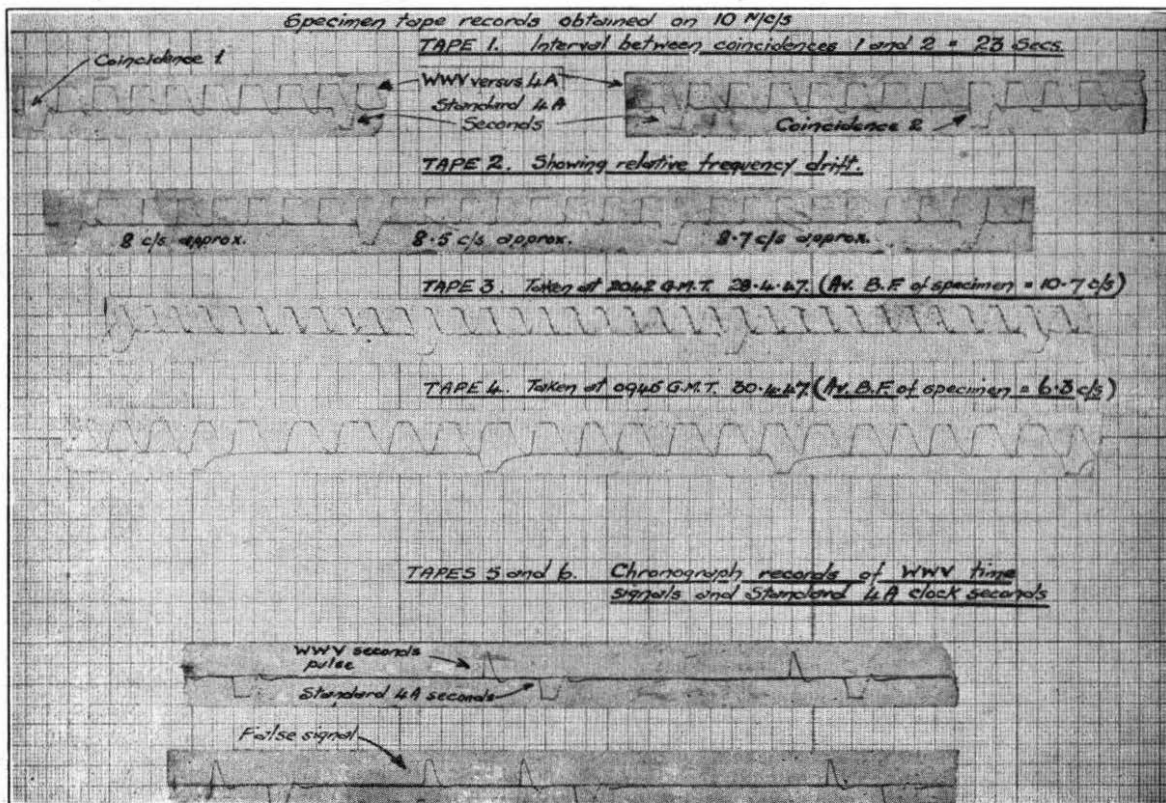 Specimen tape records obtained on 10 M/c/s
TAPE 1. Interval between coincidences 1 and 2 = 23 Secs.
Coincidence 1
WWV versus 4A
Standard 4A
Seconds
Coincidence 2
TAPE 2. Showing relative frequency drift.
8 c/s approx.
8.5 c/s approx.
8.7 c/s approx.
TAPE 3. Taken at 2042 G.M.T. 28.4.47. (Av. B.F. of specimen = 10.7 c/s)
TAPE 4. Taken at 0945 G.M.T. 30.4.47. (Av. B.F. of specimen = 6.3 c/s)
TAPES 5 and 6. Chronograph records of WWV time
signals and Standard 4A clock seconds
WWV seconds
pulse
Standard 4A seconds
False signal